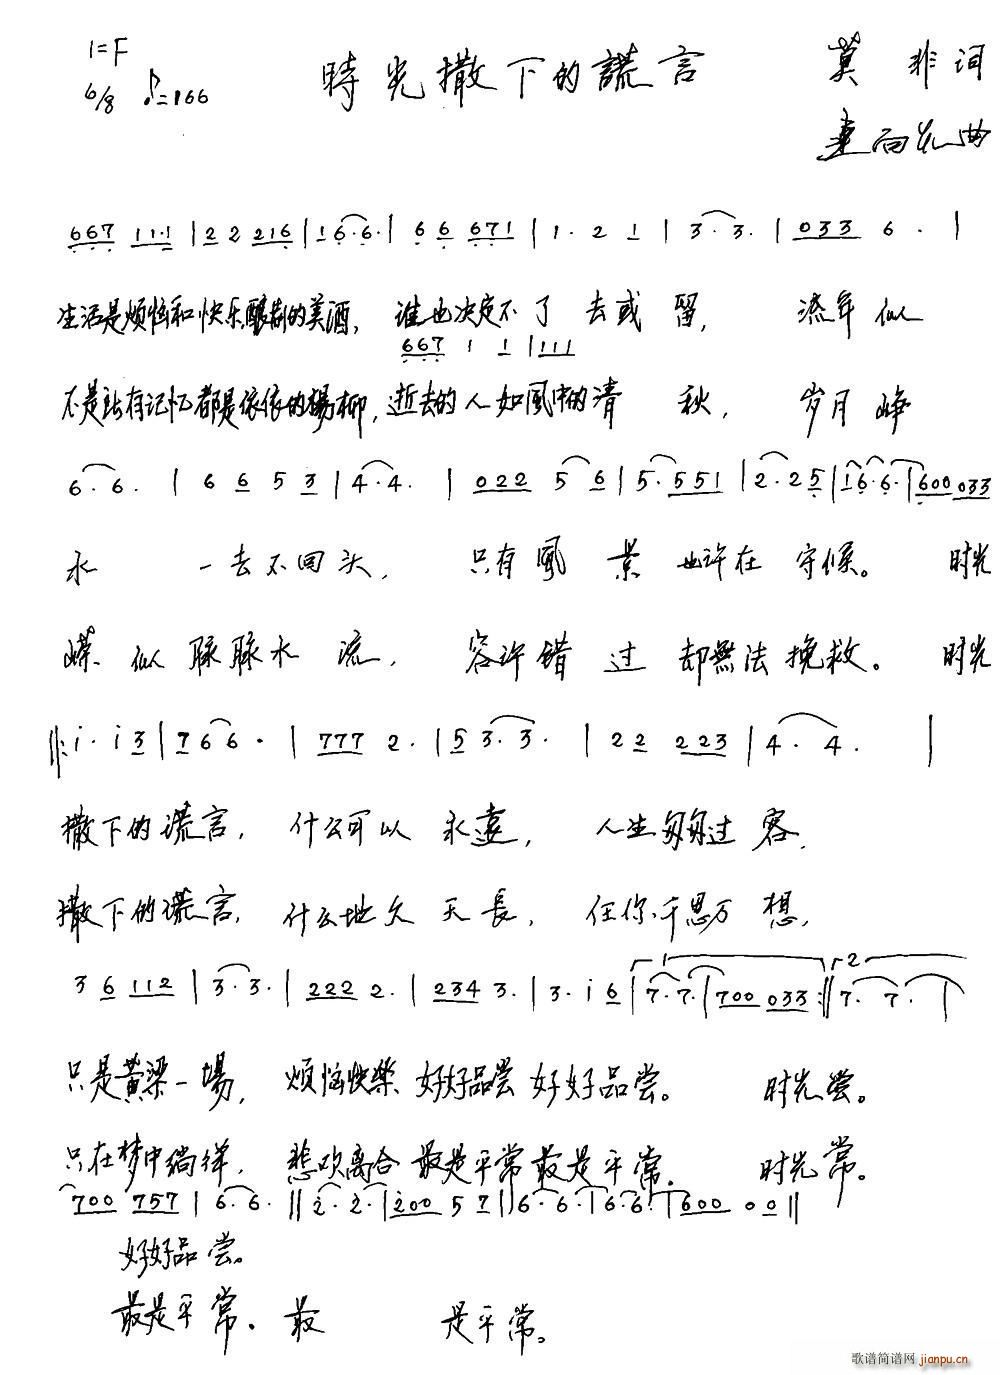 1=F 時光撒下的謊言 莫非词
6/8 ♪=166 曲
667 111·1 | 2 2 216 | 16·6· | 6 6 671 | 1· 2 1 | 3·3· | 033 6· |
生活是烦恼和快乐酿制的美酒，谁也决定不了去或留，流年似
667 1 1 | 111
不是所有记忆都是依依的楊柳，逝去的人如風中的清秋，岁月峥
6·6· | 6 6 5 3 | 4·4· | 022 5 6 | 5·551 | 2·25 | 16·6· | 600 033
水一去不回头，只有風景也许在守候。时光
嵘似脉脉水流，容许错过却無法挽救。时光
‖: i· i 3 | 7 6 6· | 777 2· | 5 3·3· | 22 223 | 4·4· |
撒下的谎言，什么可以永遠，人生匆匆过客，
撒下的谎言，什么地久天長，任你千思万想，
3 6 112 | 3·3· | 222 2· | 234 3· | 3· i 6 | 1 7·7· | 700 033 :‖ 2 7· 7· |
只是黄梁一場，烦恼快樂好好品尝好好品尝。时光尝。
只在梦中徜徉，悲欢离合最是平常最是平常。时光常。
700 757 | 6·6· ‖ 2·2· | 200 5 7 ‖ 6·6· | 6·6· | 600 00 ‖
好好品尝。
最是平常。最是平常。
歌谱简谱网 jianpu.cn